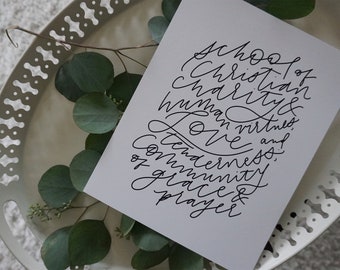 school of
Christian
charity &
human virtues.
Love and
tenderness.
Community
of grace &
prayer